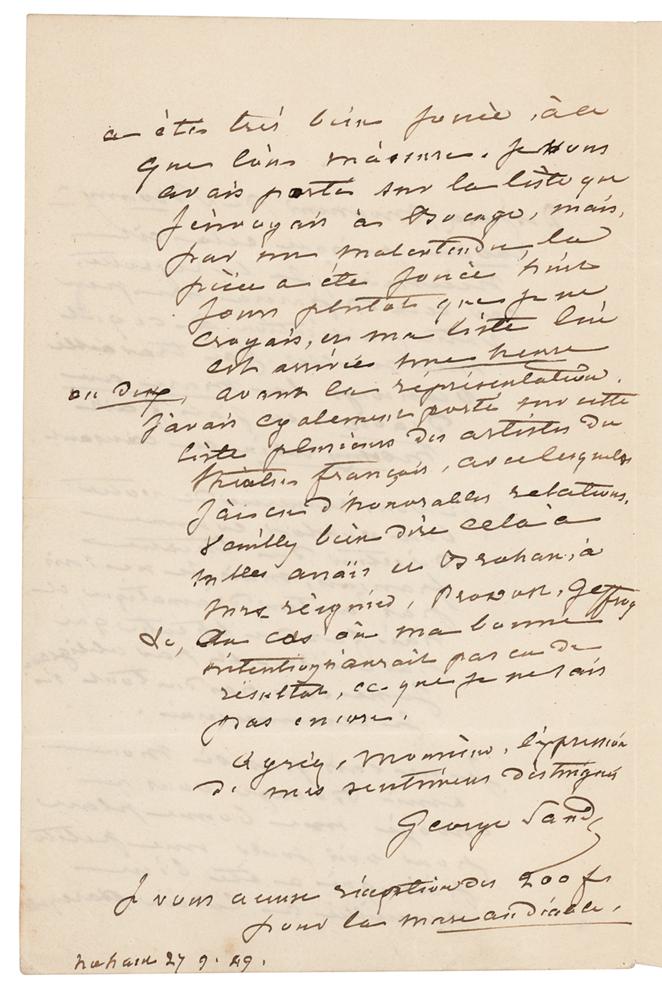 a été très bien jouée, à ce
que l'on m'assure. Je vous
avais porté sur la liste que
j'envoyais à Bocage, mais,
par un malentendu, la
pièce a été jouée huit
jours plutôt que je ne
croyais, et ma liste lui
est arrivée une heure
ou deux, avant la réprésentation.
J'avais également porté sur cette
liste plusieurs des artistes du
théatre français, avec lesquels
j'ai eu d'honorables relations.
Veuillez bien dire cela à
Mlles anaïs et Brohan, à
Mrs régnier, Provost, Geffroy
&c, Au cas où ma bonne
intention n'aurait pas eu de
résultat, ce que je ne sais
pas encore.
Agréez, Monsieur, l'expression
de mes sentimens distingués
George Sand
Je vous accuse réception des 200 f
pour la mare au diable.
Nohant 27 9. 49.